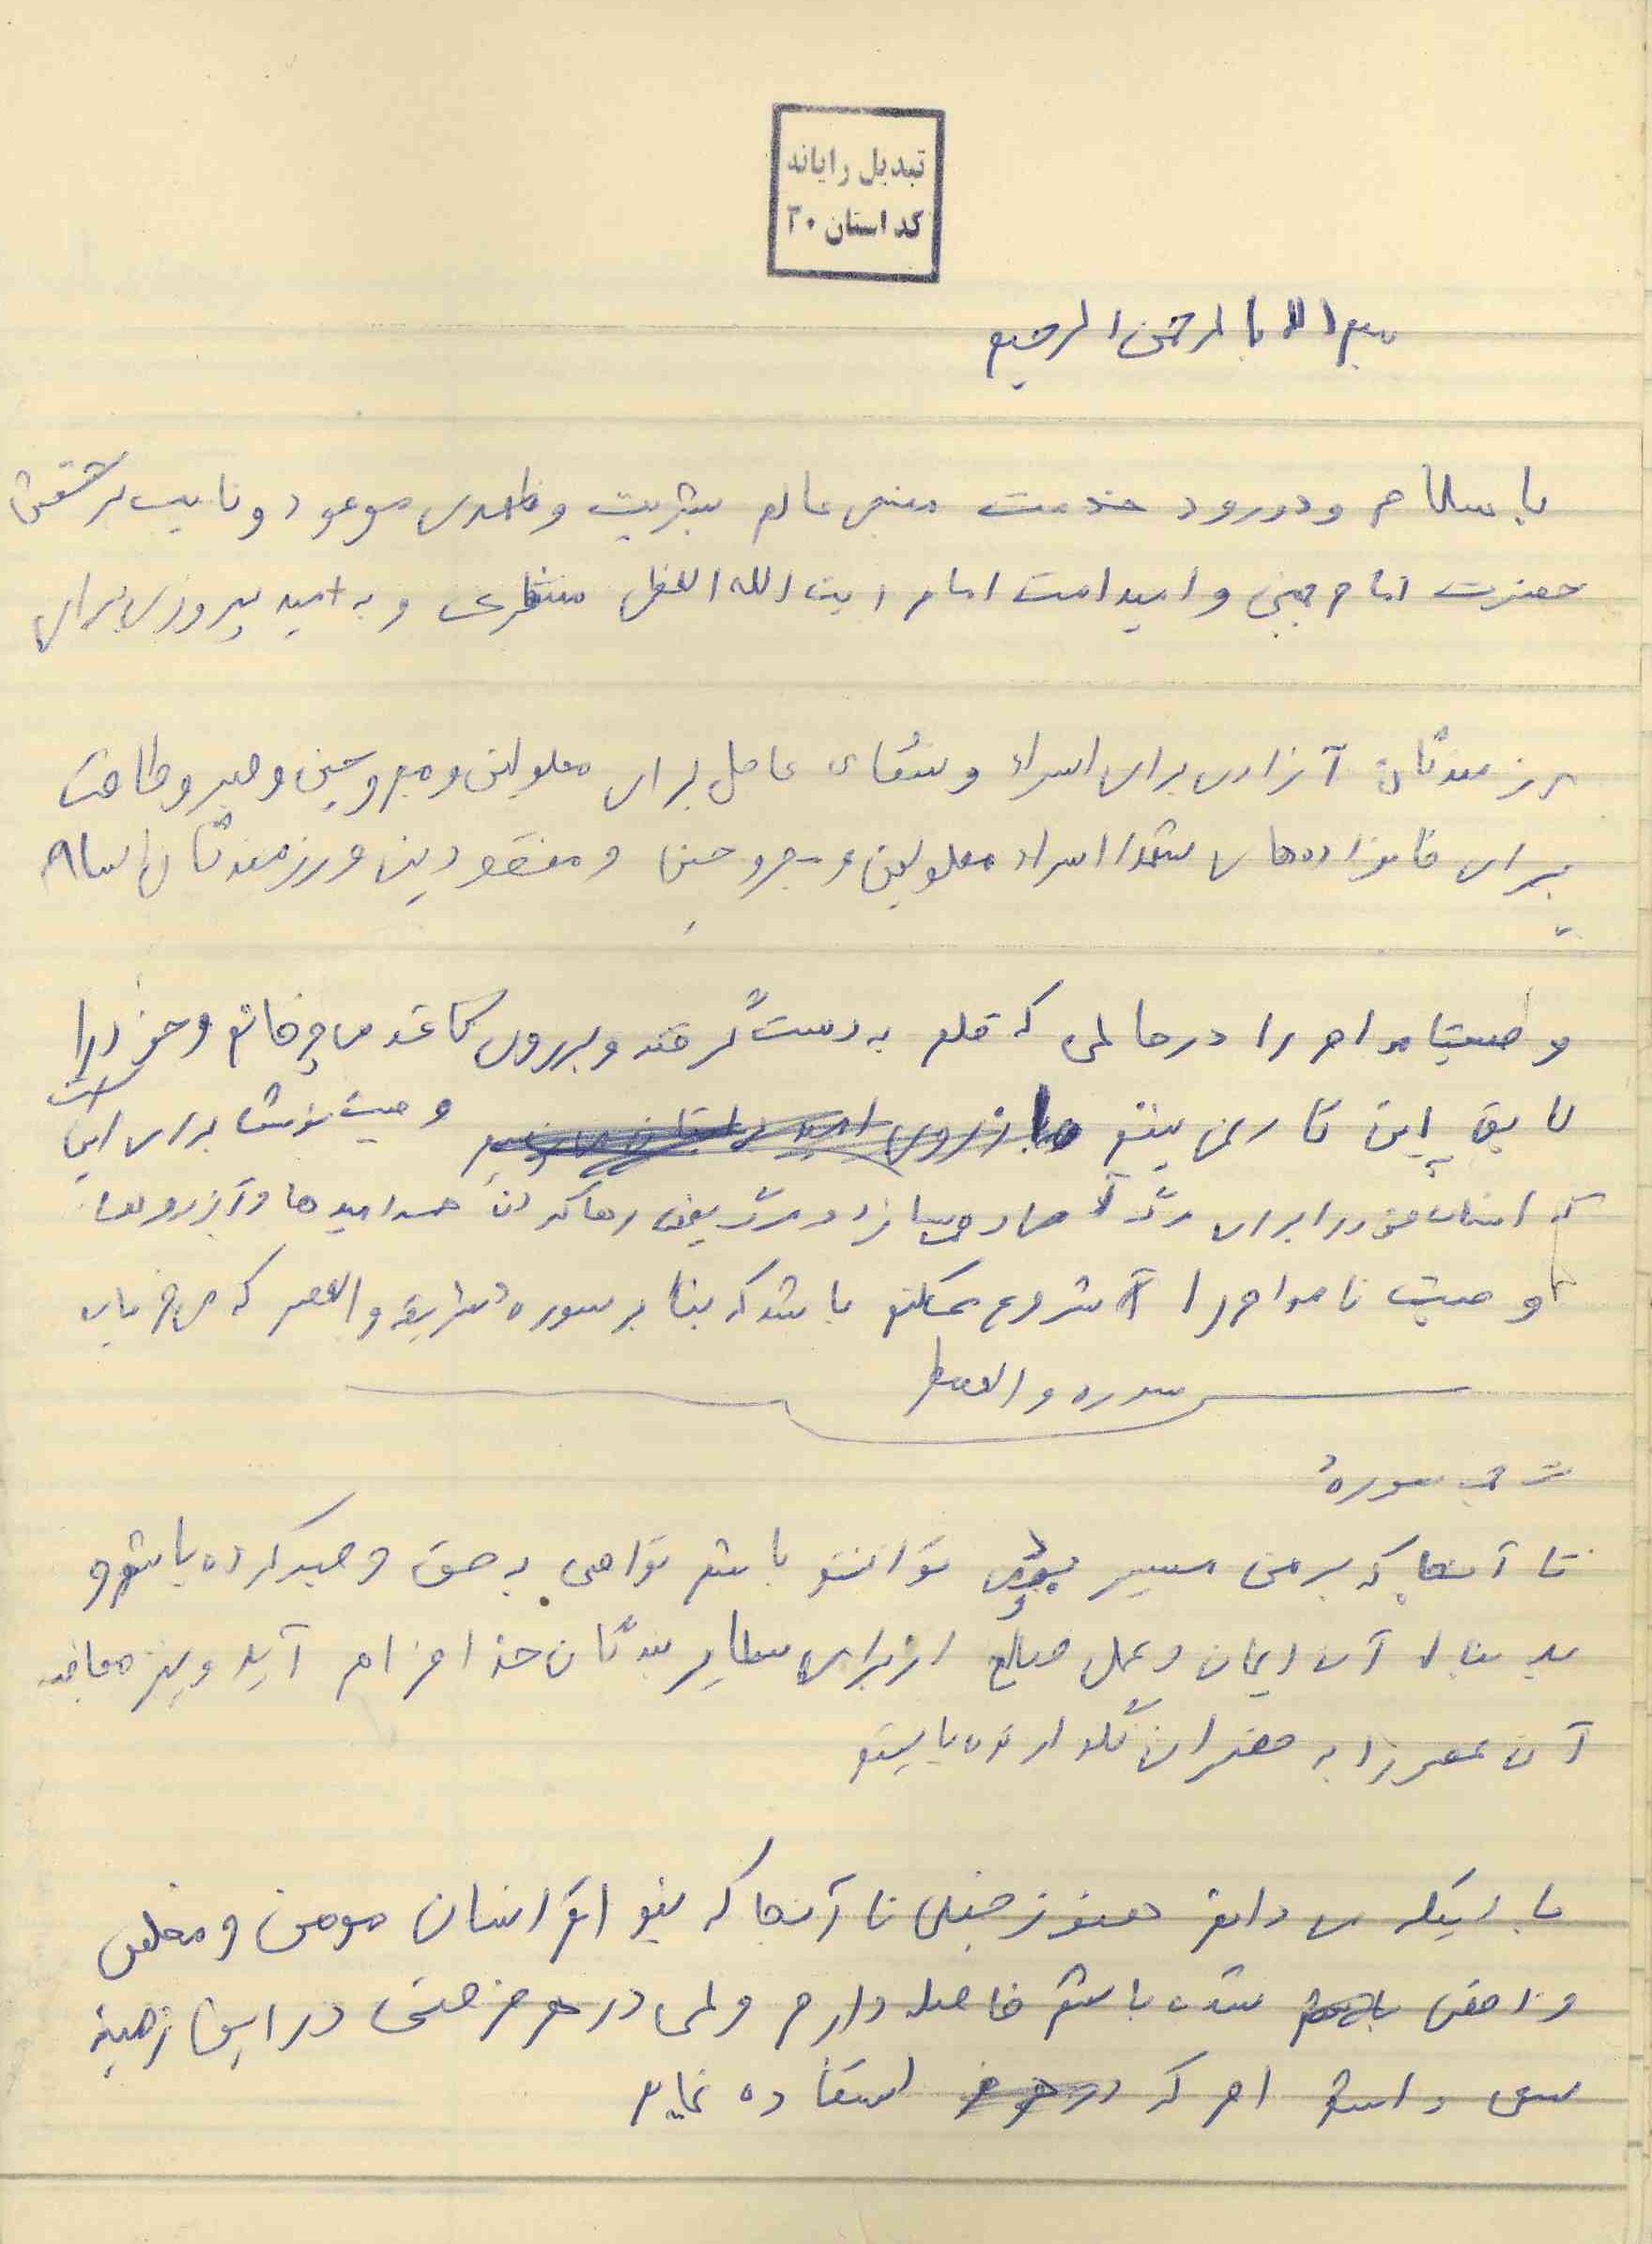 تبدیل رایانه
کد استان ۳۰
بسم الله الرحمن الرحیم
با سلام و درود خدمت منجی عالم بشریت و مهدی موعود و نایب برحقش
حضرت امام خمینی و امید امت امام ایت الله العظمی منتظری و به امید پیروزی برای
رزمندگان آزادی برای اسراء و شفای عاجل برای معلولین و مجروحین و صبر و طاقت
برای خانواده‌های شهدا اسراء معلولین و مجروحین و مفقودین و رزمندگان اسلام
وصیتنامه ام را در حالی که قلم به دست گرفته و بر روی کاغذ می چرخانم و خود را
لایق این کار نمی بینم وصیت نوشتن برای این است
که انسان خود را برای آماده می سازد و رها کردن همه امیدها و آرزوها
وصیت نامه ام را شروع میکنم باشد که بنا بر سوره شریفه والعصر که می فرماید
سوره والعصر
ترجمه سوره
تا آنجا که بر من میسر بوده توانسته باشم تواصی به حق و صبر کرده باشم و
بدنبال آن ایمان و عمل صالح از برای سایر بندگان خدا فراهم آید و نیز
آن عصر را به خسران نگذارنده باشم
با اینکه می دانم هنوز خیلی تا آنجا که بتوانم انسان مومن و مخلص
و شده باشم فاصله دارم ولی در هر فرصتی در این زمینه
سعی داشته ام که در هر استفاده نمایم